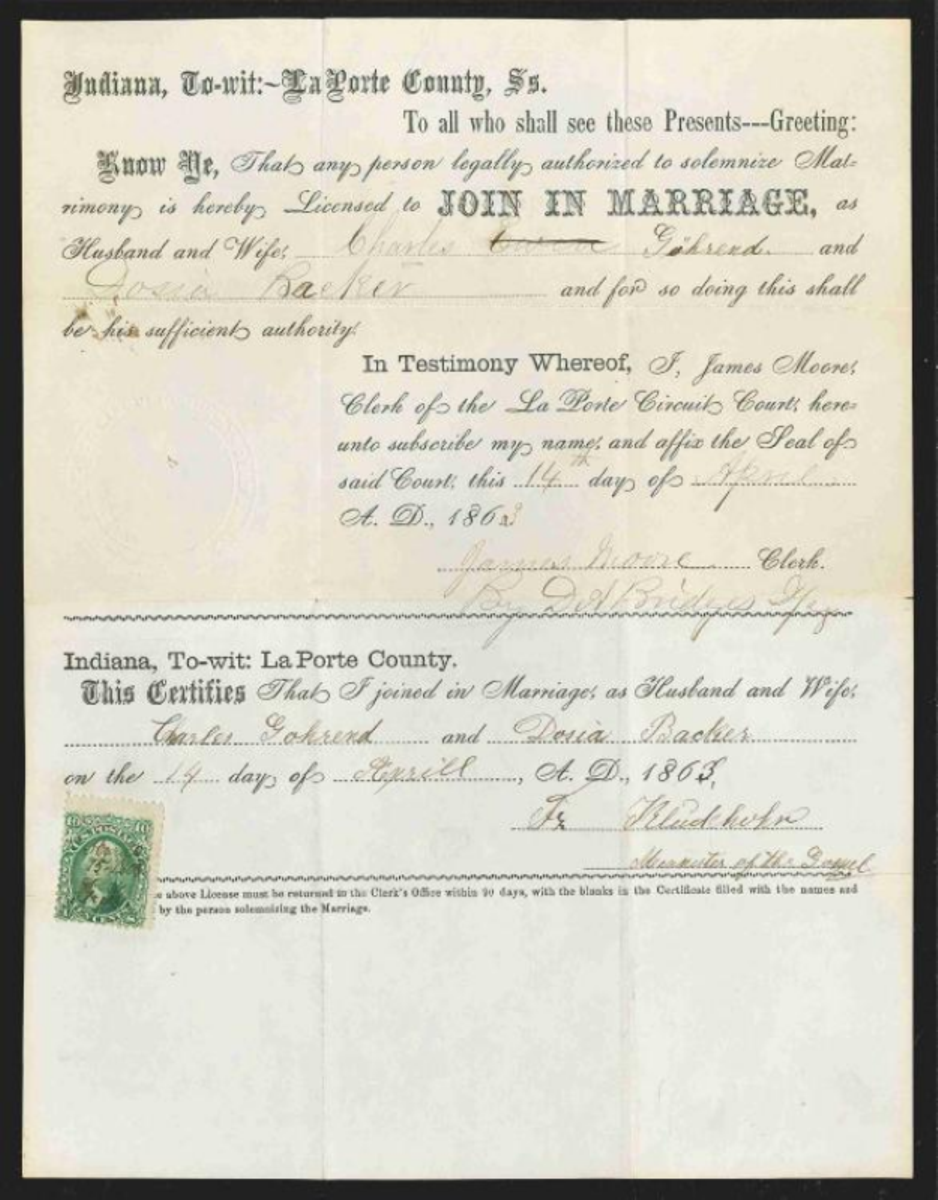 Indiana, To-wit:~La Porte County, Ss.
To all who shall see these Presents---Greeting:
Know Ye, That any person legally authorized to solemnize Mat-
rimony is hereby Licensed to JOIN IN MARRIAGE, as
Husband and Wife, Charles Göhrend. and
Dosia Backer and for so doing this shall
be his sufficient authority.
In Testimony Whereof, I, James Moore,
Clerk of the La Porte Circuit Court, here-
unto subscribe my name, and affix the Seal of
said Court, this 14th day of April
A. D., 1863
James Moore Clerk.
By Bridges
Indiana, To-wit: La Porte County.
This Certifies That I joined in Marriage, as Husband and Wife,
Charles Gohrend and Dosia Backer
on the 14 day of Aprill, A. D., 1863,
Fr
of the Gospel
10 10
above License must be returned to the Clerk's Office within 90 days, with the blanks in the Certificate filled with the names and
by the person solemnizing the Marriage.